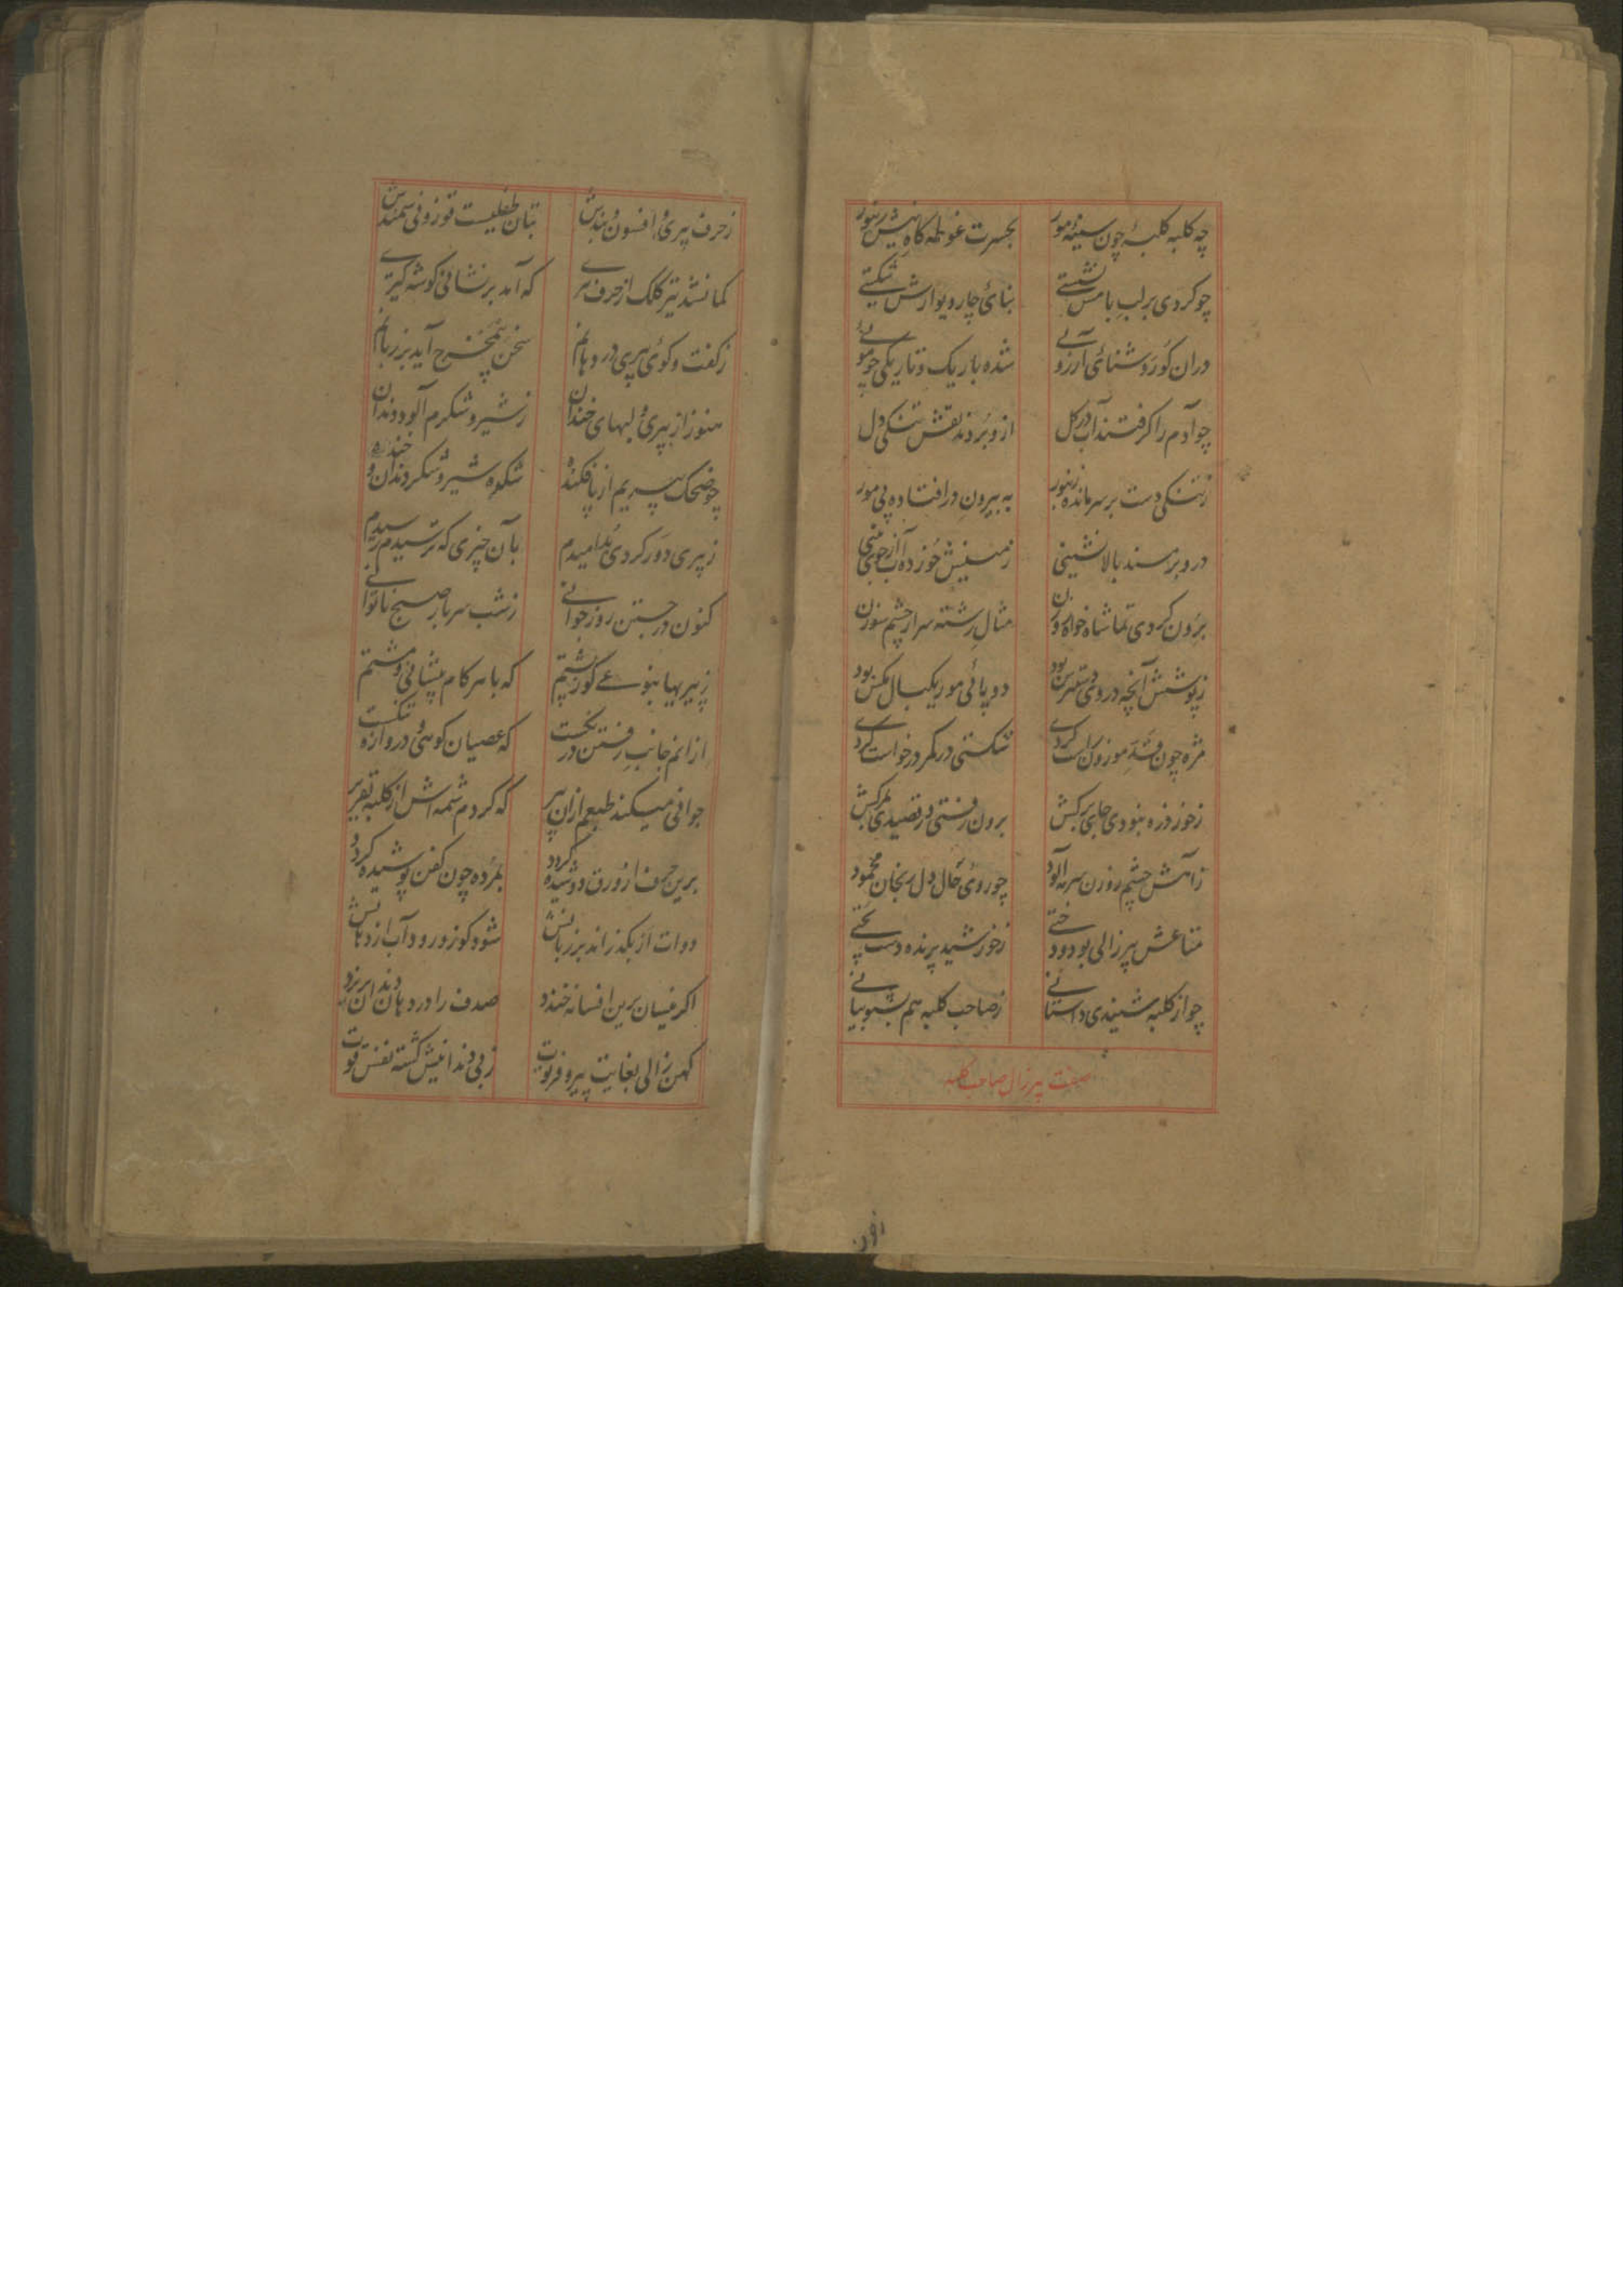 چه کلبه کلبهٔ چون سینهٔ مور بحسرت غوطه کاه نیش زنبور
چو کردی بر لب بامش نشستی بنای چار دیوارش شکستی
دران کو روشنائی آرزوئی شده باریک و تاریکی چو موئی
چو آدم را کرفتند آب در کل ازو بردند نقش تنکی دل
ز تنکی دست بر سر مانده زنبور به بیرون در افتاده پی مور
درو بر مسند بالا نشینی زمینش خورده آب از جبینی
برون کردی تماشا خواه روزن مثال رشته سر از چشم سوزن
ز پوشش آنچه در وی دسترس بود دو پائی مور یکبال مکس بود
مژه چون قد موزون راست کردی شکستی در کمر درخواست کردی
ز خور ذره نبودی جای برکش برون رفتی و رقصیدی
ز آهش چشم روزن سرمه آلود چو روی خال دل ریخان
متاعش پیرزالی بود و دختی ز خورشید پرنده دست پختی
چو از کلبه شنیدی داستانی ز صاحب کلبه هم بشنو بیانی
صفت پیرزال صاحب کلبه
ز حرف پیری و افسون و بندش بتان طفلیست قوزونی سمندش
کمانشد تیر کلک از حرف پیری که آمد بر نشانی کوشه کیری
ز کفت و کوی پیری در دهانم سخن بیمخرج آید بر زبانم
هنوز از پیری و لبهای خندان ز شیر و شکرم آلوده دندان
چو ضحاک پیریم از پا فکنده شکوه شیر و شکر دندان و خنده
ز پیری دور کردی بد امیدم بآن چیزی که ترسیدم رسیدم
کنون در جستن روز جوانی ز شب سر بار صبح ناتوانی
ز پیریها بنوعی کوژ پشتم که با سر کام پیشانی و مشتم
ازانم جانب رفتن درنکست که عصیان کوهی و دروازه تنکست
جوانی میکند طبعم ازان پیر که کردم شمه اش از کلبه تقریر
برین حرف ار ورق دوشیده کردد بمرده چون کفن پوشیده کردد
دوات ار بکذراند بر زبانش شود کوزو رود آب از دهانش
اکر نیسان برین افسانه خندد صدف را در دهان دندان
کهن زالی بغایت پیر و فرتوت ز بی دندانیش کشته نفس قوت